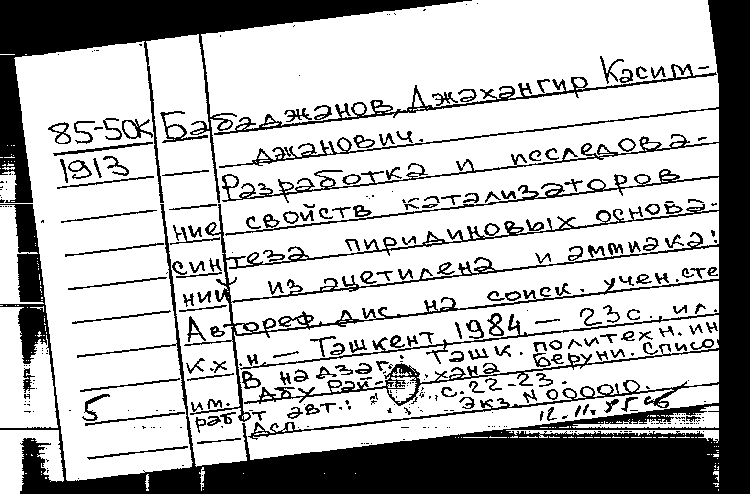 85-50К Бабаджанов, Джахангир Касим-
1913 джанович.
Разработка и исследова-
ние свойств катализаторов
синтеза пиридиновых основа-
ний из ацетилена и аммиака:
Автореф. дис. на соиск. учен. сте
к.х.н. — Ташкент, 1984 — 23 с., ил.
В надзаг.: Ташк. политехн. ин
им. Абу Рай- хана Беруни. Списо
5 работ авт.: с. 22-23.
Дсп. Экз. N 000010.
12.11.85